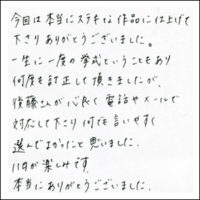 今回は本当にステキな作品に仕上げて
下さりありがとうございました。
一生に一度の挙式ということもあり
何度も訂正して頂きましたが、
後藤さんが心良く電話やメールで
対応して下さり何でも言いやすく
選んでよかったと思いました。
11日が楽しみです。
本当にありがとうございました。